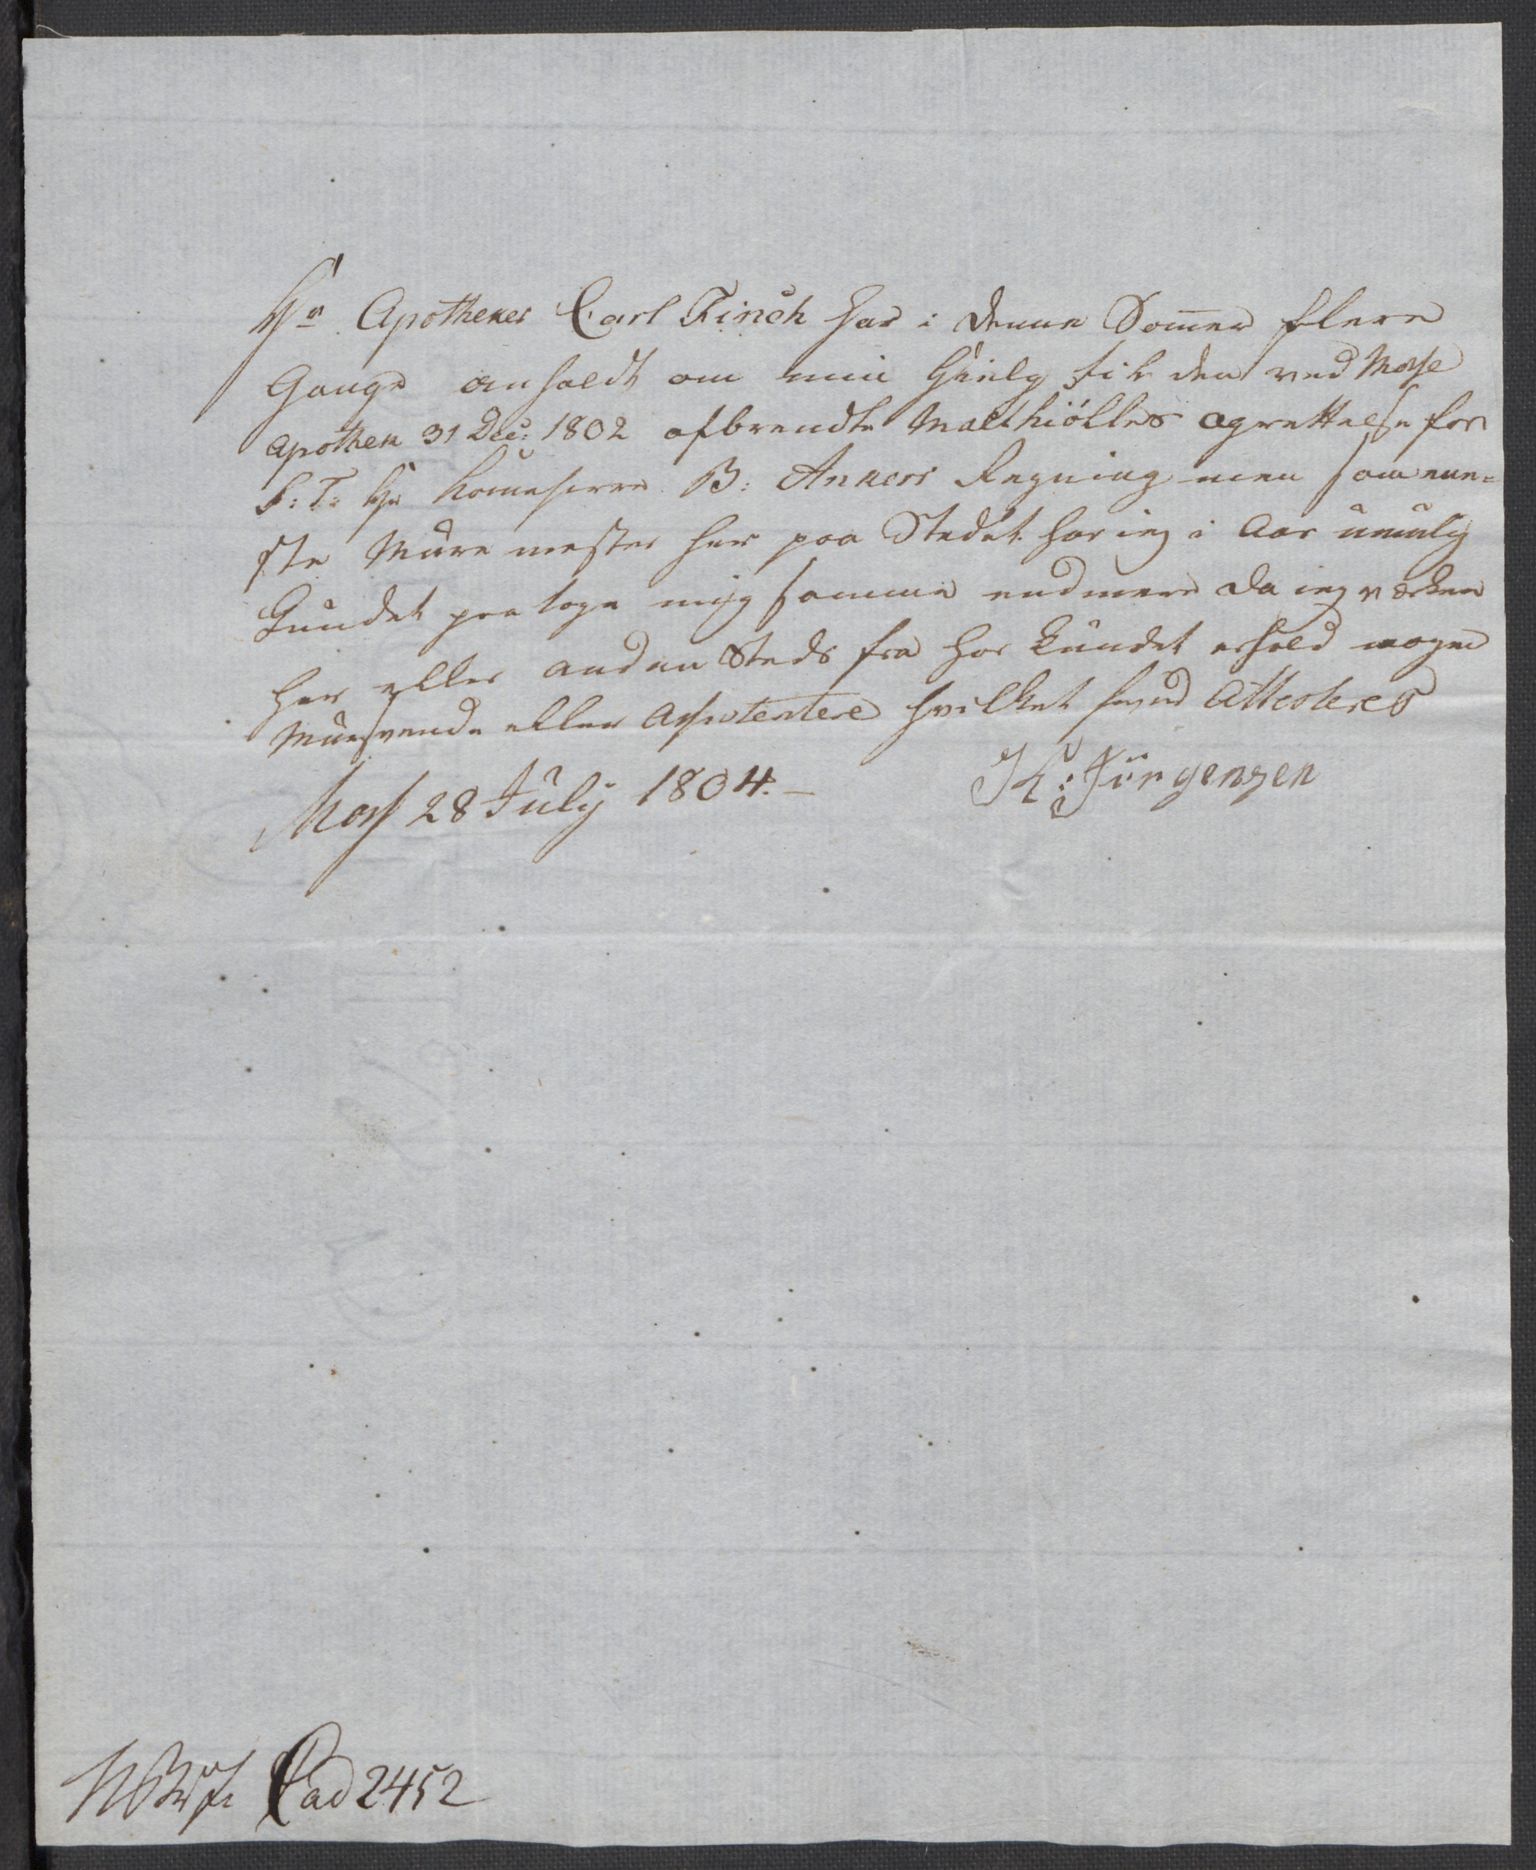 Hr. Apotheker Carl Finch har i denne Sommer flere
Gange anholdt om min Hielp til den ved Mosse
Apothek 31 Dec: 1802 afbrendte Malthiølles opretttelse for
S: T: Hr B: Ankers Regning men som ene-
ste Mure mester her paa Stedet har ieg i Aar umulig
kundet paa tage mig samme endmere da ieg verken
her eller anden Steds fra har kundet erhold nogen
Mursvende eller Assistentere hvilket herved Attesteres
Moss 28 July 1804. – K: Jürgensen
Pad 2452